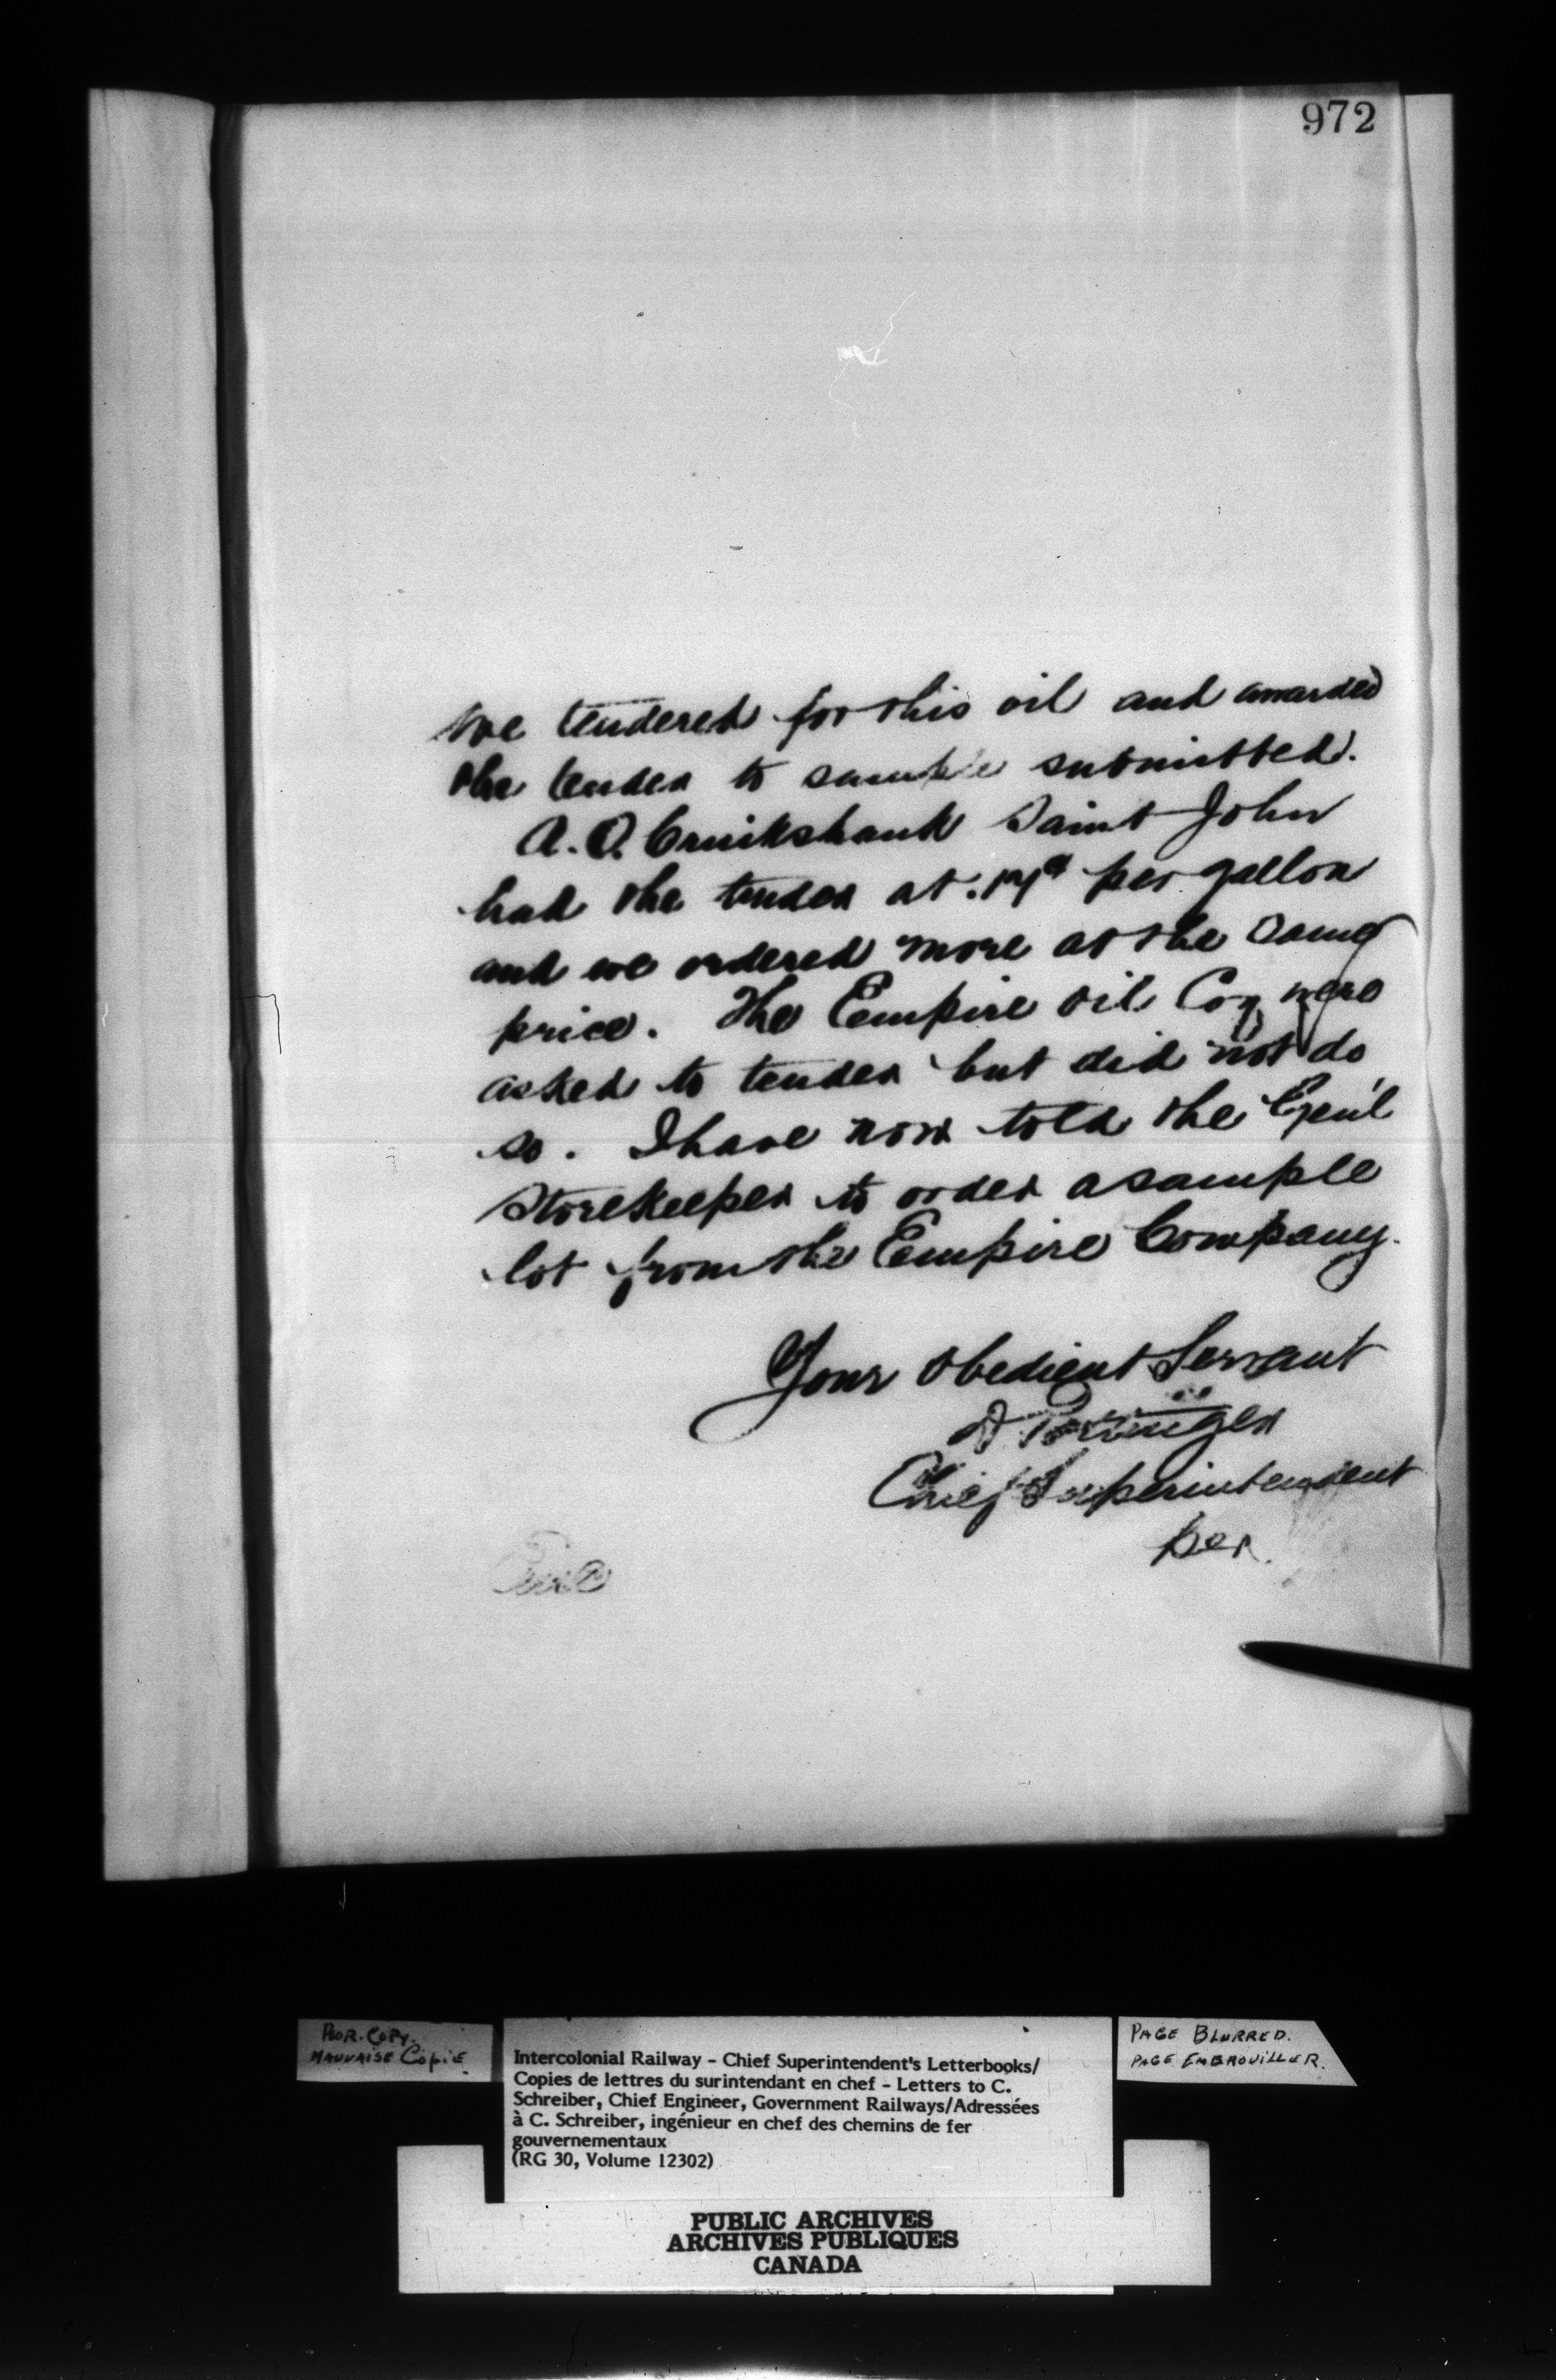 972
We tendered for this oil and awarded
the tender to sample submitted.
A. O. Cruikshank Saint John
had the tender at per gallon
and we ordered more at the same
price. The Empire Oil Coy were
asked to tender but did not do
so. I have now told the Gen'l
Storekeeper to order a sample
lot from the Empire Company.
Your Obedient Servant
D Pottinger
Chief Superintendent
per
POOR COPY.
MAUVAISE COPIE
Intercolonial Railway - Chief Superintendent's Letterbooks/
Copies de lettres du surintendant en chef - Letters to C.
Schreiber, Chief Engineer, Government Railways/Adressées
à C. Schreiber, ingénieur en chef des chemins de fer
gouvernementaux
(RG 30, Volume 12302)
PAGE BLURRED.
PAGE EMBROUILLER.
PUBLIC ARCHIVES
ARCHIVES PUBLIQUES
CANADA